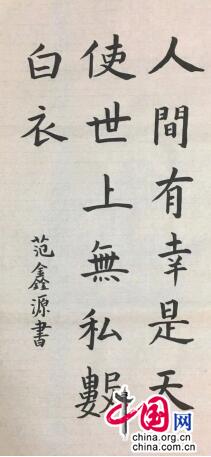 人間有幸是天
使世上無私數
白衣
范鑫源書
中国网
china.org.cn
china.com.cn